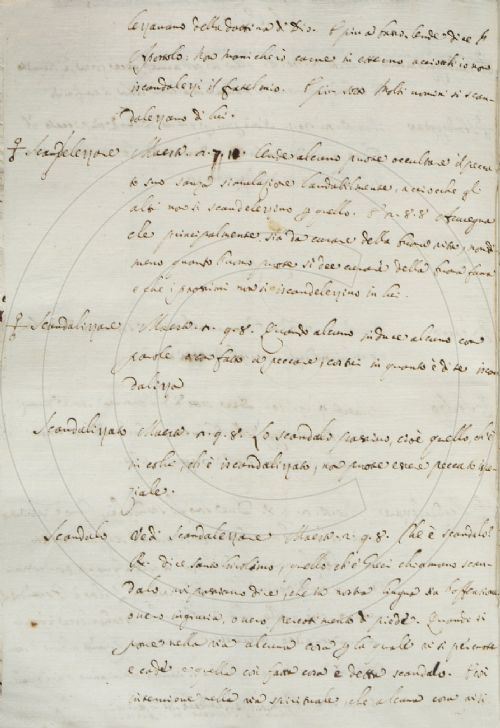 lezzavano della dottrina di Dio. E più a basso. Onde dice l'
Apostolo. Non manicherò carne in eterno acciocch' io non
iscandalezzi il fratel mio. E più sotto Molti uomini si scan-
dalezzano di lui.
Scandelezzare Maestr. 2. 7. 10. Onde alcuno puote occultare il pecca-
to suo sanza simulazione laudabilmente, acciocchè gli
altri non si scandelezzino per quello. E 2. 8. 8. Avvegna
che principalmente sia da curare della buona vita, nondi-
meno quanto l'uomo puote si dee curare della buona fama
e che i prossimi non si iscandelezzino in lui.
Scandalizzare Maestr. 2. 9. 8. Quando alcuno induce alcuno con
parole fatto a peccare, costui in quanto è di se iscan-
dalizza
Scandalizzato Maestr. 2. 9. 8. Lo scandalo passivo, cioè quello, ch'è
in colui, ch'è iscandalizzato, non puote essere peccato
ziale.
Scandalo Vedi scandalezzare Maestr. 2. 9. 8. Che è scandalo?
Re. dice santo Girolimo, quello ch'e' Greci chiamano scan-
dalo, noi possiamo dire, che in nostra lingua sia offensione
ovvero ingiuria, ovvero percotimento di piede. Quando si
pone nella via alcuna cosa per la quale vi si percuote
e cade e quella così fatta cosa è detta scandalo. Così
interviene nella via spirituale, che alcuna con